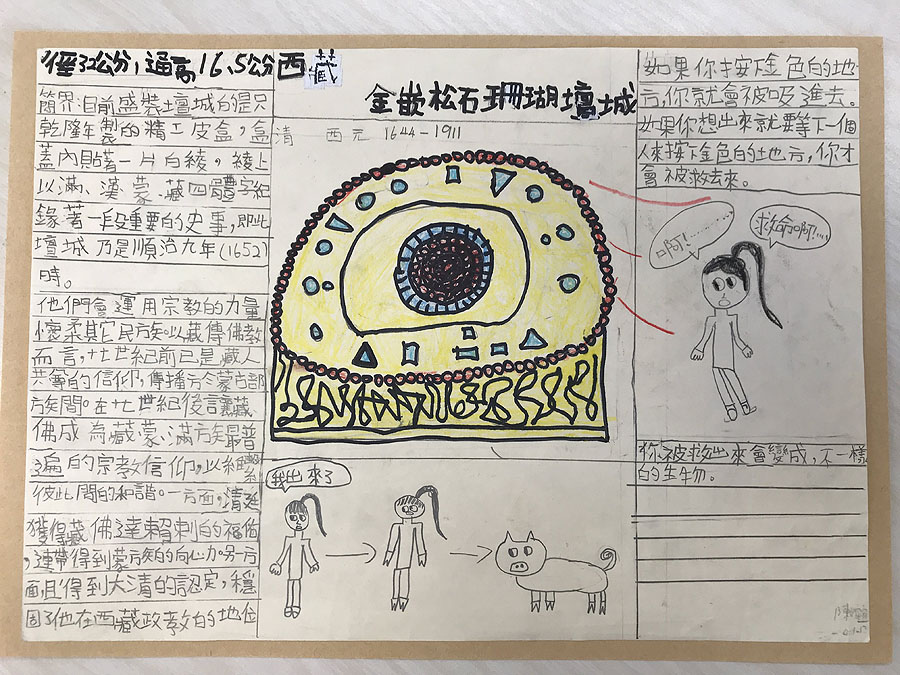 徑32公分,通高16.5公分 西藏
金嵌松石珊瑚壇城
清 西元 1644-1911
簡界:目前盛裝壇城的是只
乾隆年製的精工皮盒,盒
蓋內貼著一片白綾,綾上
以滿、漢、蒙、藏四體字紀
錄著一段重要的史事,即此
壇城乃是順治九年(1652)
時。
他們會運用宗教的力量
懷柔其它民族。以藏傳佛教
而言,十七世紀前已是藏人
共奉的信仰,傳播於蒙古部
族間。在十七世紀後言,藏
佛成為藏、蒙、滿族最普
遍的宗教信仰,以維繫
彼此間的和諧。一方面,清廷
獲得藏佛達賴喇的福佑
,連帶得到蒙族的向心力。另一方
面,且得到大清的認定,穩
固了他在西藏政教的地位
如果你按下金色的地
方,你就會被吸進去。
如果你想出來就要等下一個
人來按下金色的地方,你才
會被救去來。
啊!………
救命啊!…
你被救出來會變成,不一樣
的生物。
我出來了